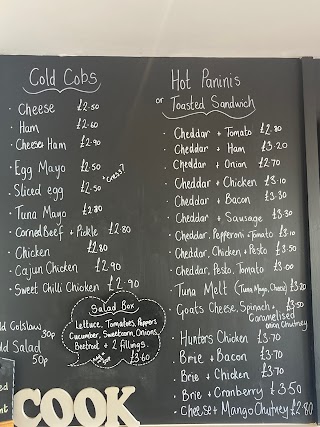 Cold Cobs
· Cheese £2.50
· Ham £2.60
· Cheese Ham £2.90
· Egg Mayo £2.50
· Sliced egg £2.50
+ cress?
· Tuna Mayo £2.80
· Corned Beef + Pickle £2.80
· Chicken £2.80
· Cajun Chicken £2.90
· Sweet Chilli Chicken £2.90
Coleslaw 30p
Salad 50p
Salad Box
Lettuce, Tomatoes, Peppers
Cucumber, Sweetcorn, Onions,
Beetroot + 2 fillings.
£3.60
COOK
Hot Paninis
or Toasted Sandwich
· Cheddar + Tomato £2.80
· Cheddar + Ham £3.20
· Cheddar + Onion £2.70
· Cheddar + Chicken £3.10
· Cheddar + Bacon £3.30
· Cheddar + Sausage £3.30
· Cheddar, Pepperoni + Tomato £3.10
· Cheddar, Chicken + Pesto £3.50
· Cheddar, Pesto, Tomato £3.00
· Tuna Melt (Tuna Mayo, Cheese) £3.20
· Goats Cheese, Spinach + £3.50
Caramelised
onion Chutney
· Hunters Chicken £3.70
· Brie + Bacon £3.70
· Brie + Chicken £3.70
· Brie + Cranberry £3.50
· Cheese + Mango Chutney £2.80